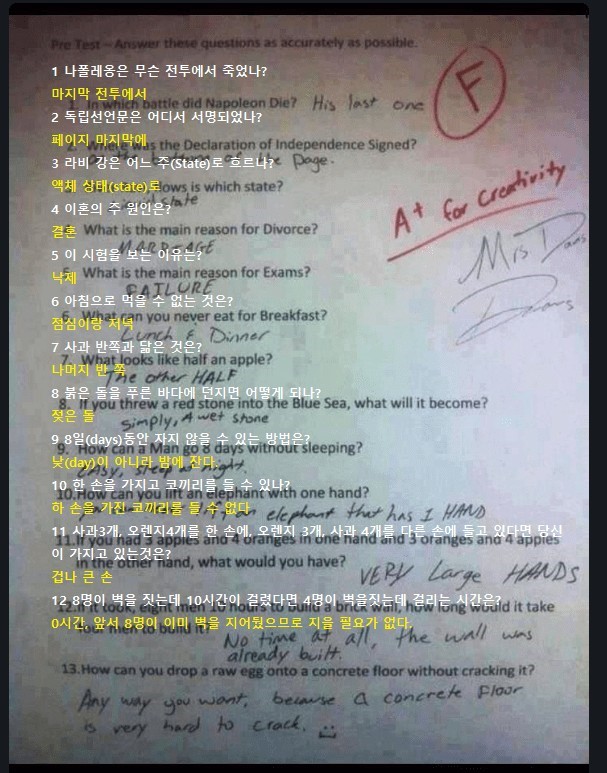 Pre Test – Answer these questions as accurately as possible.
F
1 나폴레옹은 무슨 전투에서 죽었나?
마지막 전투에서
1. In which battle did Napoleon Die? His last one
2 독립선언문은 어디서 서명되었나?
페이지 마지막에
was the Declaration of Independence Signed?
page.
3 라비 강은 어느 주(State)로 흐르나?
액체 상태(state)로
lows is which state?
state
A+ for Creativity
4 이혼의 주 원인은?
What is the main reason for Divorce?
결혼
MARRIAGE
Mrs Davis
5 이 시험을 보는 이유는?
What is the main reason for Exams?
낙제
FAILURE
6 아침으로 먹을 수 없는 것은?
6. What can you never eat for Breakfast?
점심이랑 저녁
Lunch & Dinner
7 사과 반쪽과 닮은 것은?
7. What looks like half an apple?
나머지 반 쪽
The other HALF
8 붉은 돌을 푸른 바다에 던지면 어떻게 되나?
8. If you threw a red stone into the Blue Sea, what will it become?
젖은 돌
simply, A wet stone
9 8일(days)동안 자지 않을 수 있는 방법은?
9. How can a Man go 8 days without sleeping?
낮(day)이 아니라 밤에 잔다.
10 한 손을 가지고 코끼리를 들 수 있나?
10.How can you lift an elephant with one hand?
하 손을 가진 코끼리를 들 수 없다
an elephant that has 1 HAND
11 사과3개, 오렌지4개를 한 손에, 오렌지 3개, 사과 4개를 다른 손에 들고 있다면 당신
이 가지고 있는것은?
11.If you had 3 apples and 4 oranges in one hand and 3 oranges and 4 apples
in the other hand, what would you have?
겁나 큰 손
VERY Large HANDS
12 8명이 벽을 짓는데 10시간이 걸렸다면 4명이 벽을짓는데 걸리는 시간은?
12.If it took eight men 10 hours to build a brick wall, how long would it take
0시간, 앞서 8명이 이미 벽을 지어뒀으므로 지을 필요가 없다.
four men to build it?
No time at all, the wall was
already built.
13.How can you drop a raw egg onto a concrete floor without cracking it?
Any way you want, because a concrete floor
is very hard to crack.